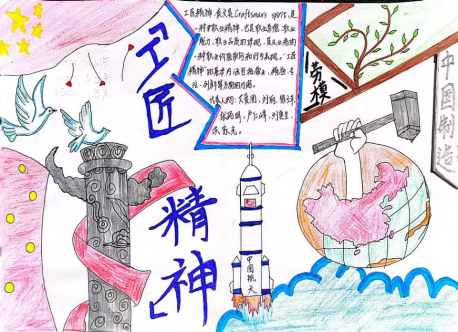 「工匠
精神」
工匠精神，英文是Craftsman's spirit，是
一种职业精神，它是职业道德、职业
能力、职业品质的体现，是从业者的
一种职业价值取向和行为表现。“工匠
精神”的基本内涵包括敬业、精益、专
注、创新等方面的内容。
代表人物：刘丽、
卢仁峰、刘更生、
劳模
中国制造
中国航天